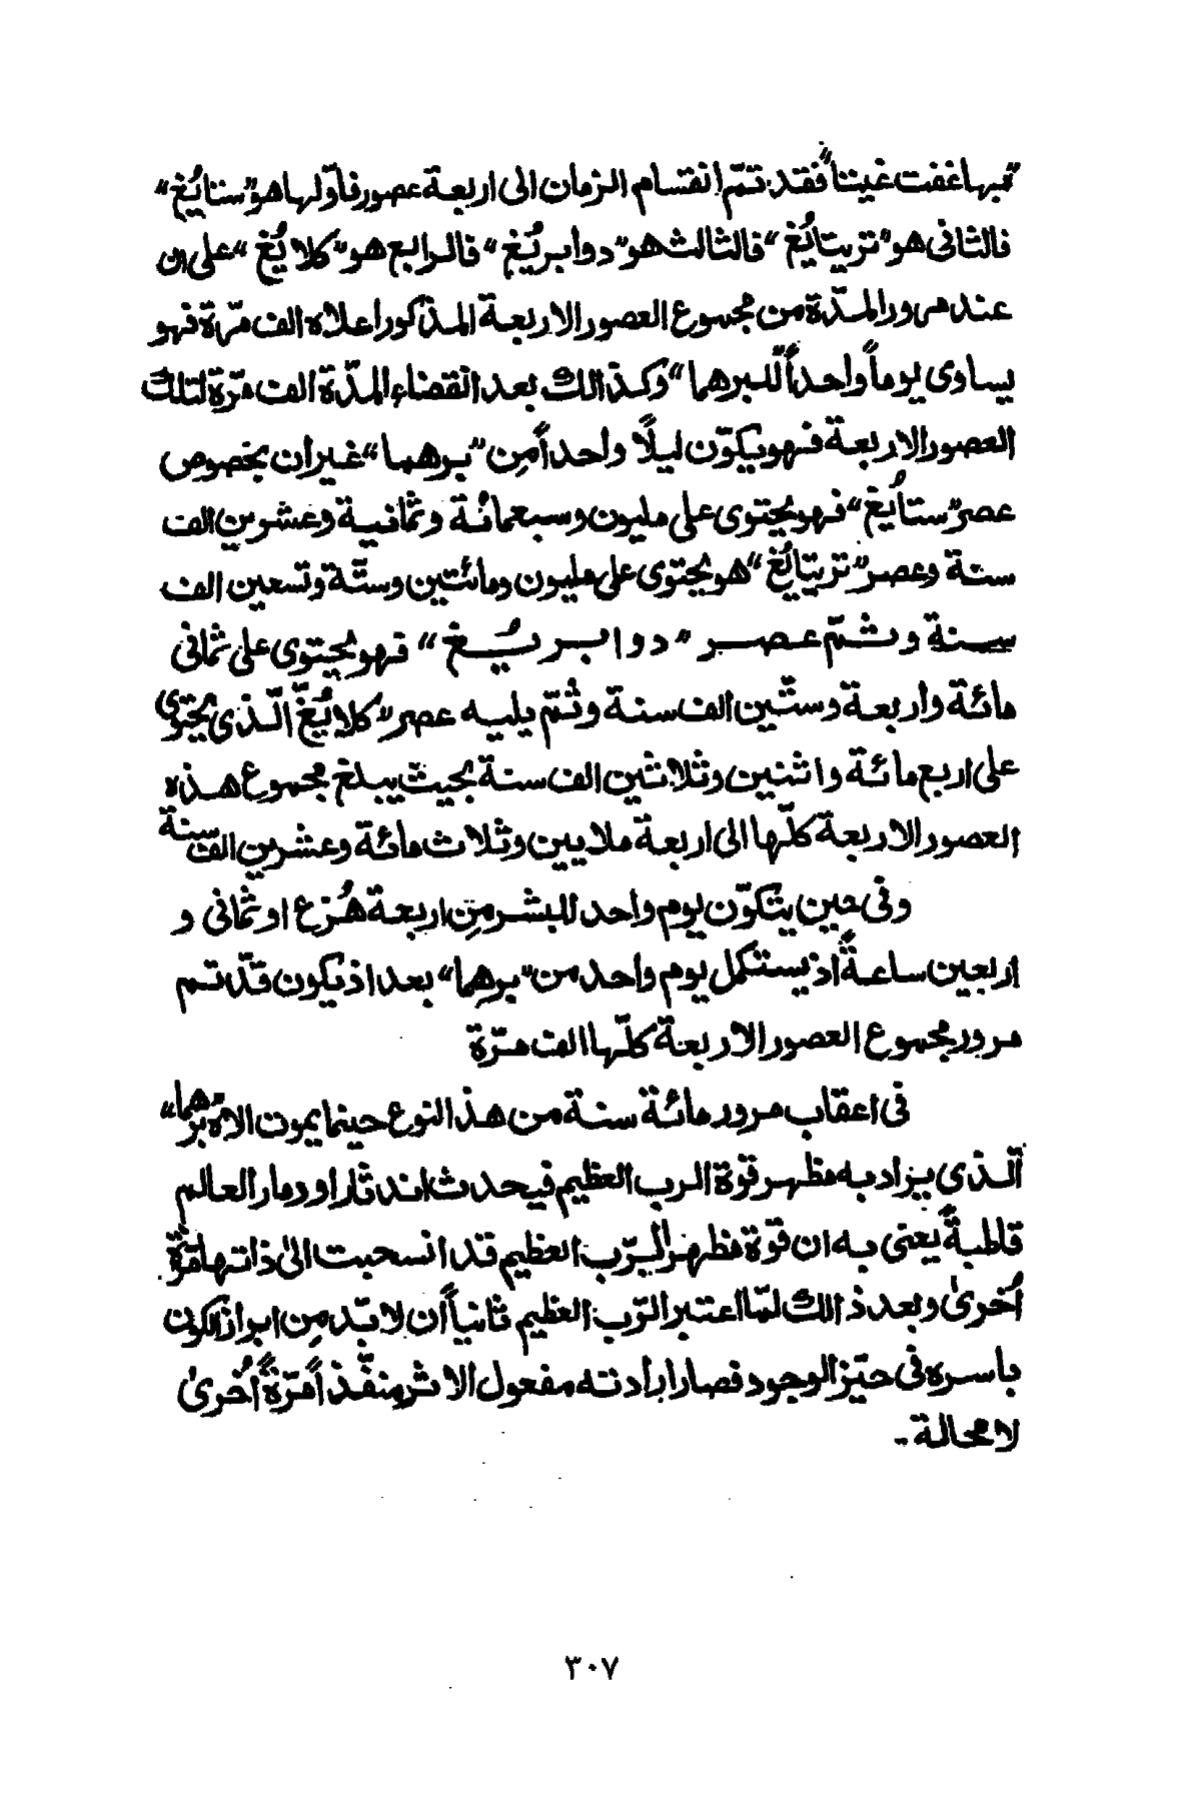 ”بهاغفت غيتا“ فقد تمّ انقسام الزمان الى اربعة عصور فاوّلها هو ”ستايُغ“
فالثانى هو ”تريتايُغ“ فالثالث هو ”دوابريُغ“ فالرابع هو ”كلايُغ“ على ان
عند مرور المدّة من مجموع العصور الاربعة المذكور اعلاه الف مرّة فهو
يساوى يوماً واحداً ”للبرهما“ وكذالك بعد انقضاء المدّة الف مرّة لتلك
العصور الاربعة فهو يكوّن ليلًا واحداً مِن ”برهما“ غير ان بخصوص
عصر ”ستايُغ“ فهو يحتوى على مليون وسبعمائة وثمانية وعشرين الف
سنة وعصر ”تريتايُغ“ هو يحتوى على مليون ومائتين وستّة وتسعين الف
سنة وثمّ عصر ”دوابريُغ“ فهو يحتوى على ثمانى
مائة واربعة وستّين الف سنة وثُمّ يليه عصر ”كلايُغ“ الّذى يحتوى
على اربع مائة واثنين وثلاثين الف سنة بحيث يبلغ مجموع هذه
العصور الاربعة كلّها الى اربعة ملايين وثلاث مائة وعشرين الف سنة
وفى حين يتكوّن يوم واحد للبشر مِن اربعة هُزع او ثمانى و
اربعين ساعةً اذ يستكمل يوم واحد من ”برهما“ بعد اذ يكون قد تم
مرور مجموع العصور الاربعة كلّها الف مرّة
فى اعقاب مرور مائة سنة من هذ النوع حينما يموت الاله ”برهما“
الّذى يراد به مظهر قوة الرب العظيم فيحدث اندثار او دمار العالم
قاطبةً يعنى به ان قوة مظهر الرّب العظيم قد انسحبت الىٰ ذاتها مرّة
اُخرىٰ وبعد ذالك لمّا اعتبر الرّب العظيم ثانياً ان لا بدّ مِن ابراز الكون
باسره فى حيّز الوجود فصار ارادته مفعول الاثر منفّذاً مرّةً اُخرىٰ
لا محالة ۔
٣٠٧